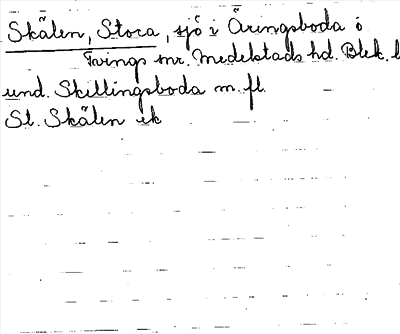 Skålen, Stora, sjö i Äringsboda o
Tvings snr. Medelstads hd. Blek. l
und. Skillingsboda m. fl.
St. Skålen ek